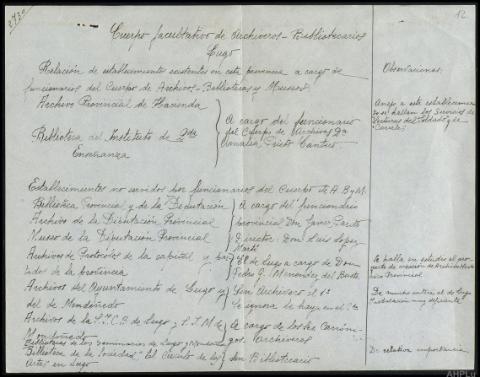 2730
12
Cuerpo facultativo de Archiveros-Bibliotecarios
Lugo
Relación de establecimientos existentes en esta provincia a cargo de
funcionarios del Cuerpo de Archivos-Bibliotecas y Museos
Observaciones
Archivo Provincial de Hacienda
Biblioteca del Instituto de 2da
Enseñanza
A cargo del funcionario
del Cuerpo de Archivos Dª
Amalia Prieto Cantero
Anejo a este establecimien
to se hallan los servicios de
Lecturas del Soldado y de
Establecimientos no servidos por funcionarios del Cuerpo de A. B y M.
Biblioteca Provincial y de la Diputación
Archivo de la Diputación Provincial
Museo de la Diputación Provincial
A cargo del funcionario
provincial Don Javier
Director: Don Luis López
Martí
Archivos de Protocolos de la capital y
de la provincia
El de Lugo a cargo de Don
Pedro G. Menéndez del
Se halla en estudio el pro
yecto de creación de Archivo Histórico
Provincial
Archivos del Ayuntamiento de Lugo y
del de Mondoñedo
Sin Archivero el 1º
Se ignora si hay en el 2º
De mucho interés el de Lugo
Archivos de la S.I.C.B de Lugo y S.I. de
Mondoñedo
a cargo de los
Archiveros
Bibliotecas de los Seminarios de Lugo y Mondoñedo
Biblioteca de la Sociedad "El Círculo de las
Artes" en Lugo
Sin Bibliotecario
De relativa importancia
AHPLu